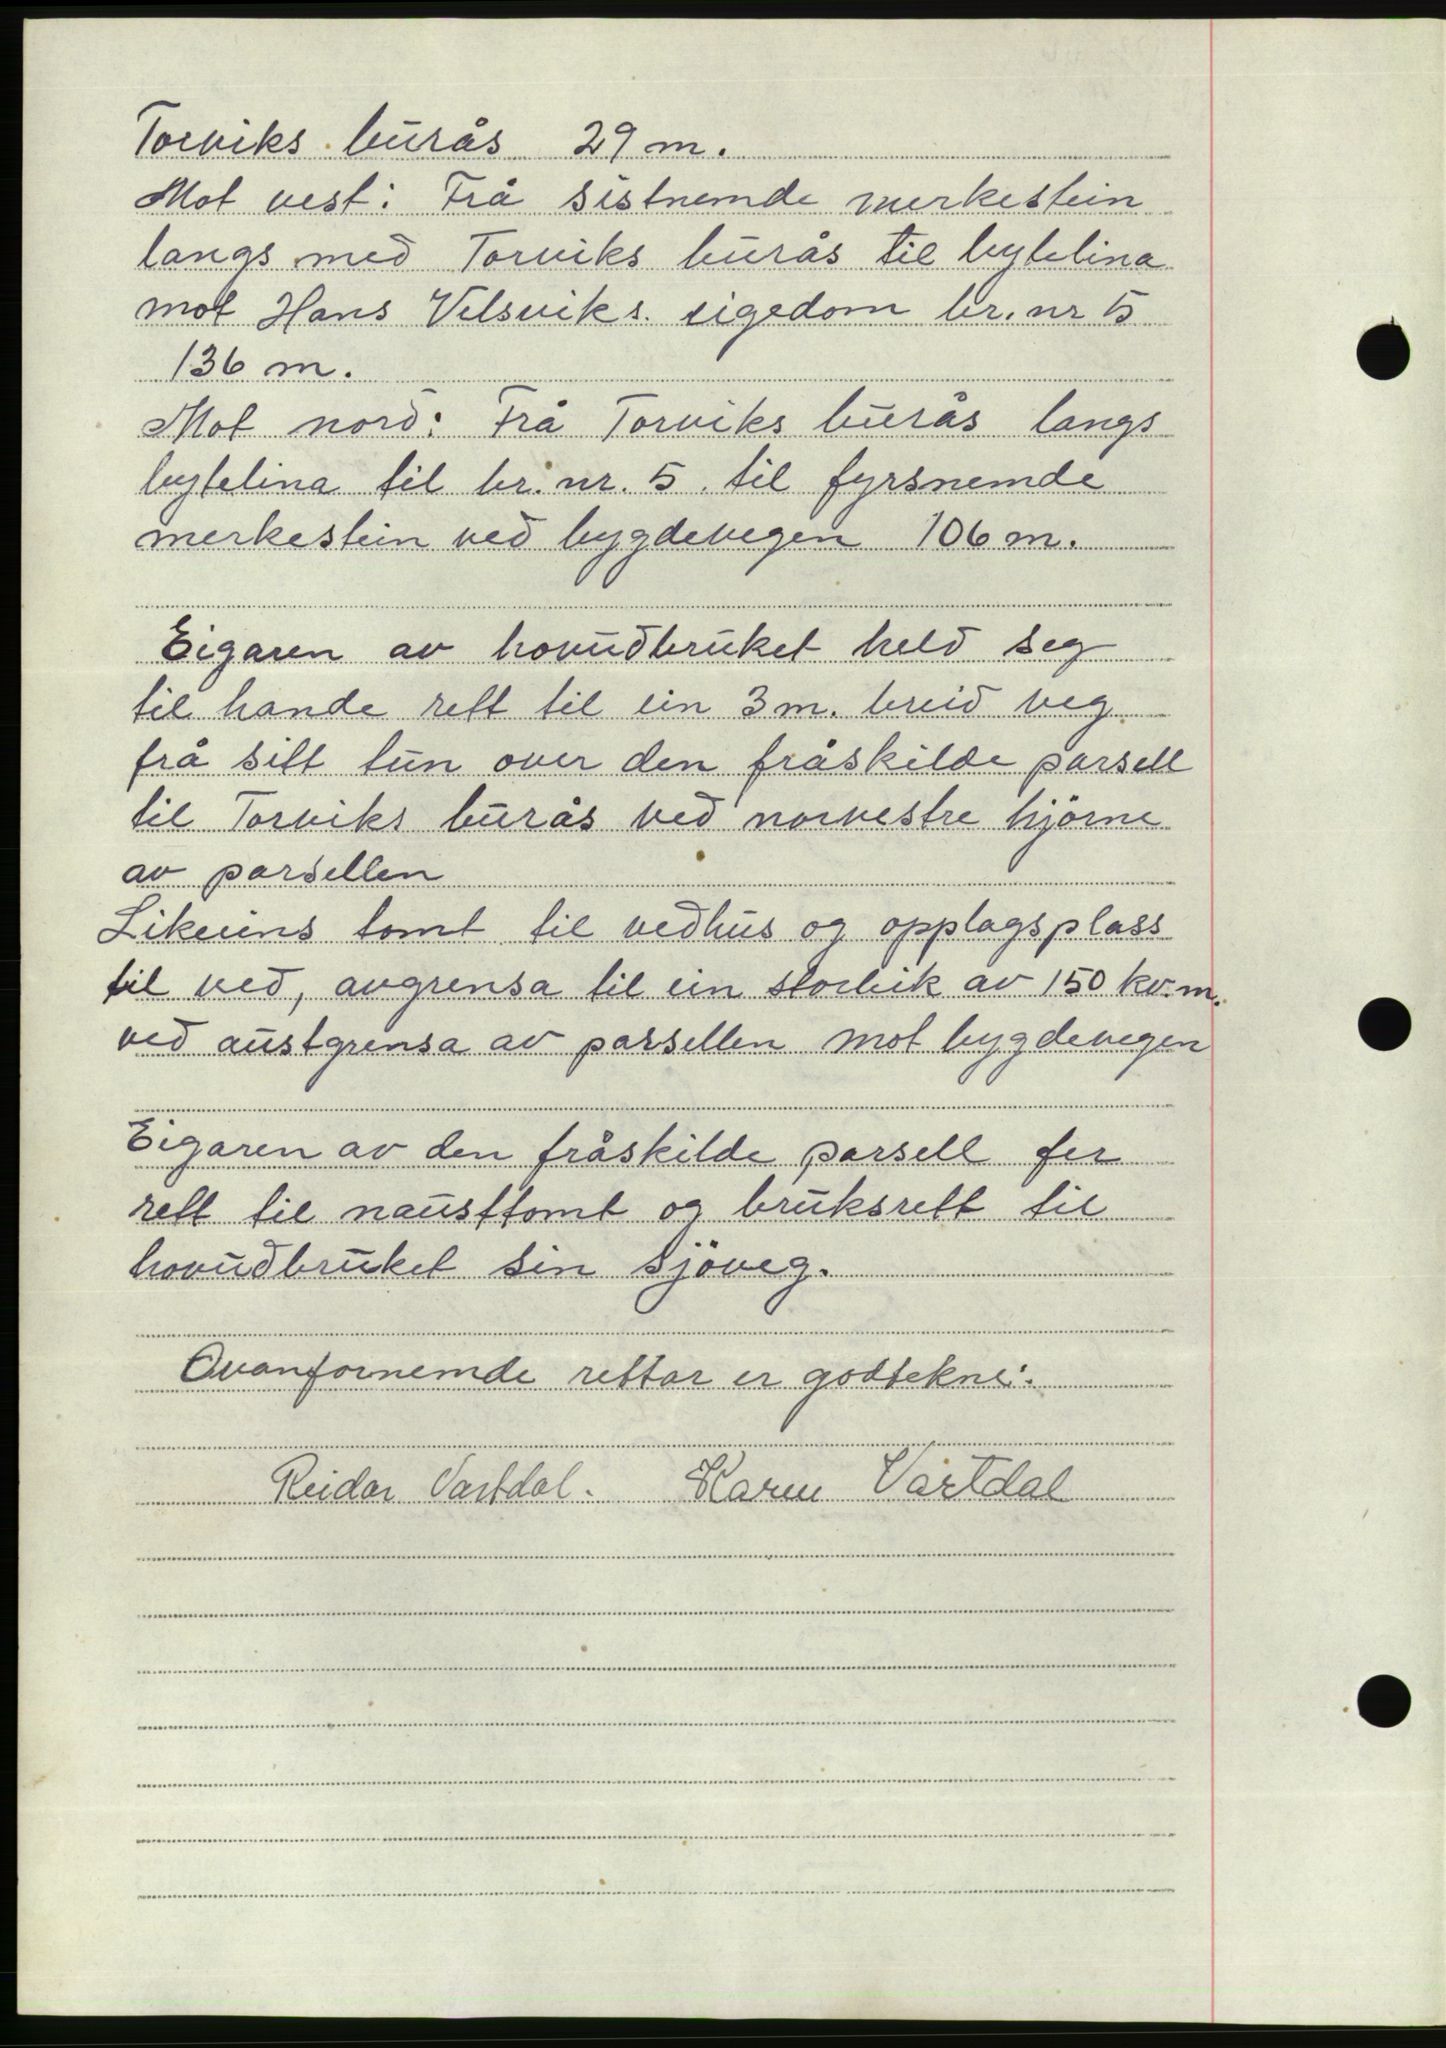 Torviks burås 29 m.
Mot vest: Frå sistnemde merkestein
langs med Torviks burås til bytelina
mot Hans Velsviks eigedom br. nr 5
136 m.
Mot nord: Frå Torviks burås langs
bytelina til br. nr. 5 til fyrsnemde
merkestein ved bygdevegen 106 m.
Eigaren av hovudbruket held seg
til hande rett til ein 3 m. breid veg
frå sitt tun over den fråskilde parsell
til Torviks burås ved norvestre hjörne
av parsellen
Likeeins tomt til vedhus og opplagsplass
til ved, avgrensa til ein storleik av 150 kv.m.
ved austgrensa av parsellen mot bygdevegen
Eigaren av den fråskilde parsell fer
rett til nausttomt og bruksrett til
hovudbruket sin sjöveg.
Ovanfornemde rettar er godtekne.
Reidar Vartdal. Karen Vartdal